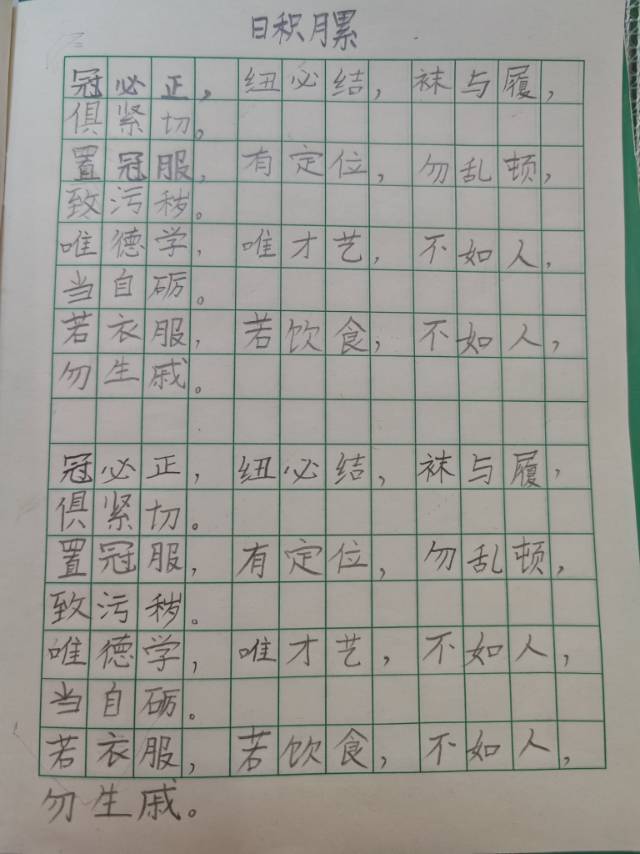 日积月累
冠必正，纽必结，袜与履，
俱紧切，
置冠服，有定位，勿乱顿，
致污秽。
唯德学，唯才艺，不如人，
当自砺。
若衣服，若饮食，不如人，
勿生戚。
冠必正，纽必结，袜与履，
俱紧切。
置冠服，有定位，勿乱顿，
致污秽。
唯德学，唯才艺，不如人，
当自砺。
若衣服，若饮食，不如人，
勿生戚。